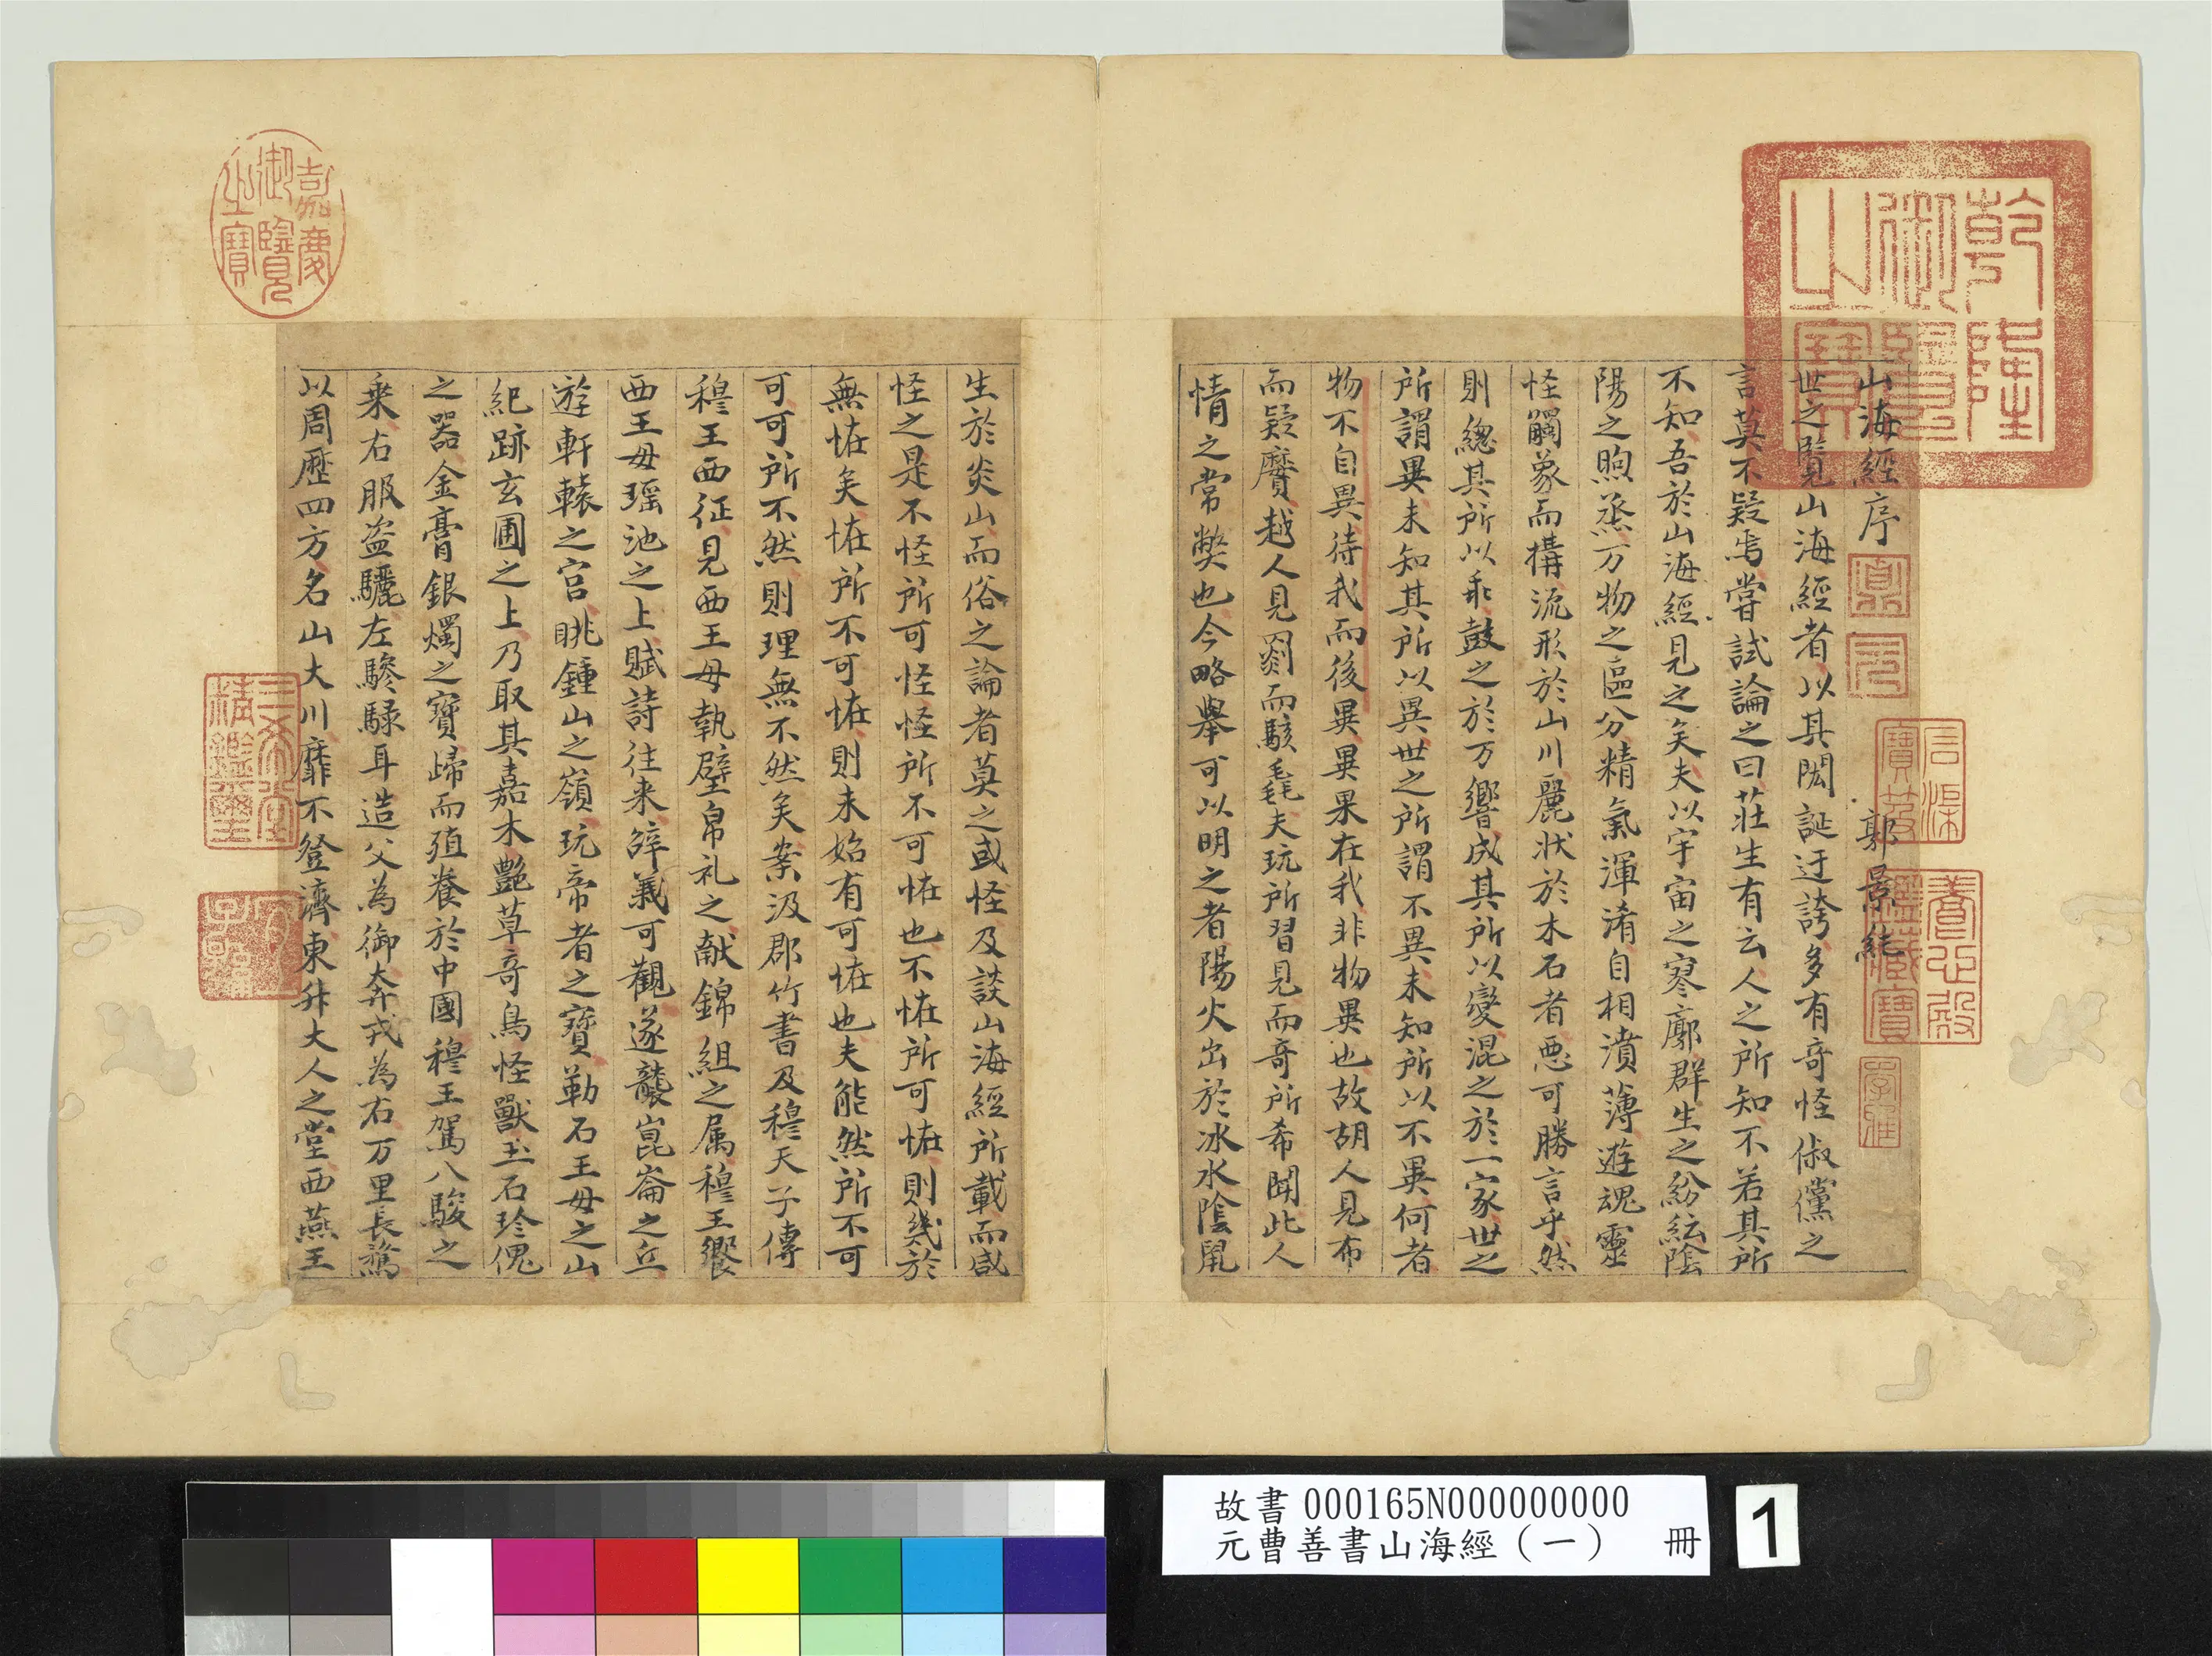 山海經序
郭景純
世之覽山海經者以其閎誕迂誇多有竒怪俶儻之
言莫不疑焉甞試論之曰莊生有云人之所知不若其所
不知吾於山海經見之矣夫以宇宙之寥廓群生之紛紜陰
陽之煦烝万物之區分精氣渾淆自相濆薄遊魂靈
怪觸象而構流形於山川麗狀於木石者惡可勝言乎然
則總其所以乖鼓之於万響成其所以變混之於一家世之
所謂異未知其所以異世之所謂不異未知所以不異何者
物不自異待我而後異異果在我非物異也故胡人見布
而疑黂越人見罽而駭毳夫玩所習見而竒所希聞此人
情之常弊也今略舉可以明之者陽火出於冰水陰鼠
生於炎山而俗之論者莫之或怪及談山海經所載而咸
怪之是不怪所可怪怪所不可恠也不恠所可恠則幾於
無恠矣恠所不可恠則未始有可恠也夫能然所不可
可可所不然則理無不然矣案汲郡竹書及穆天子傳
穆王西征見西王母執璧帛礼之献錦組之属穆王饗
西王母瑶池之上賦詩往来辝義可觀遂襲崑崙之丘
遊軒轅之宫眺鍾山之嶺玩帝者之寶勒石王母之山
紀跡玄圃之上乃取其嘉木艷草竒鳥怪獸玉石珍傀
之器金膏銀燭之寶歸而殖養於中國穆王駕八駿之
乗右服盗驪左驂騄耳造父為御奔戎為右万里長騖
以周歴四方名山大川靡不登濟東升大人之堂西燕王
乾隆御覽之寶
嘉慶御覽之寶
三希堂精鑑璽
宜子孫
石渠寶笈
養心殿鑑藏寶
故書 000165N000000000
元曹善書山海經（一） 冊
1